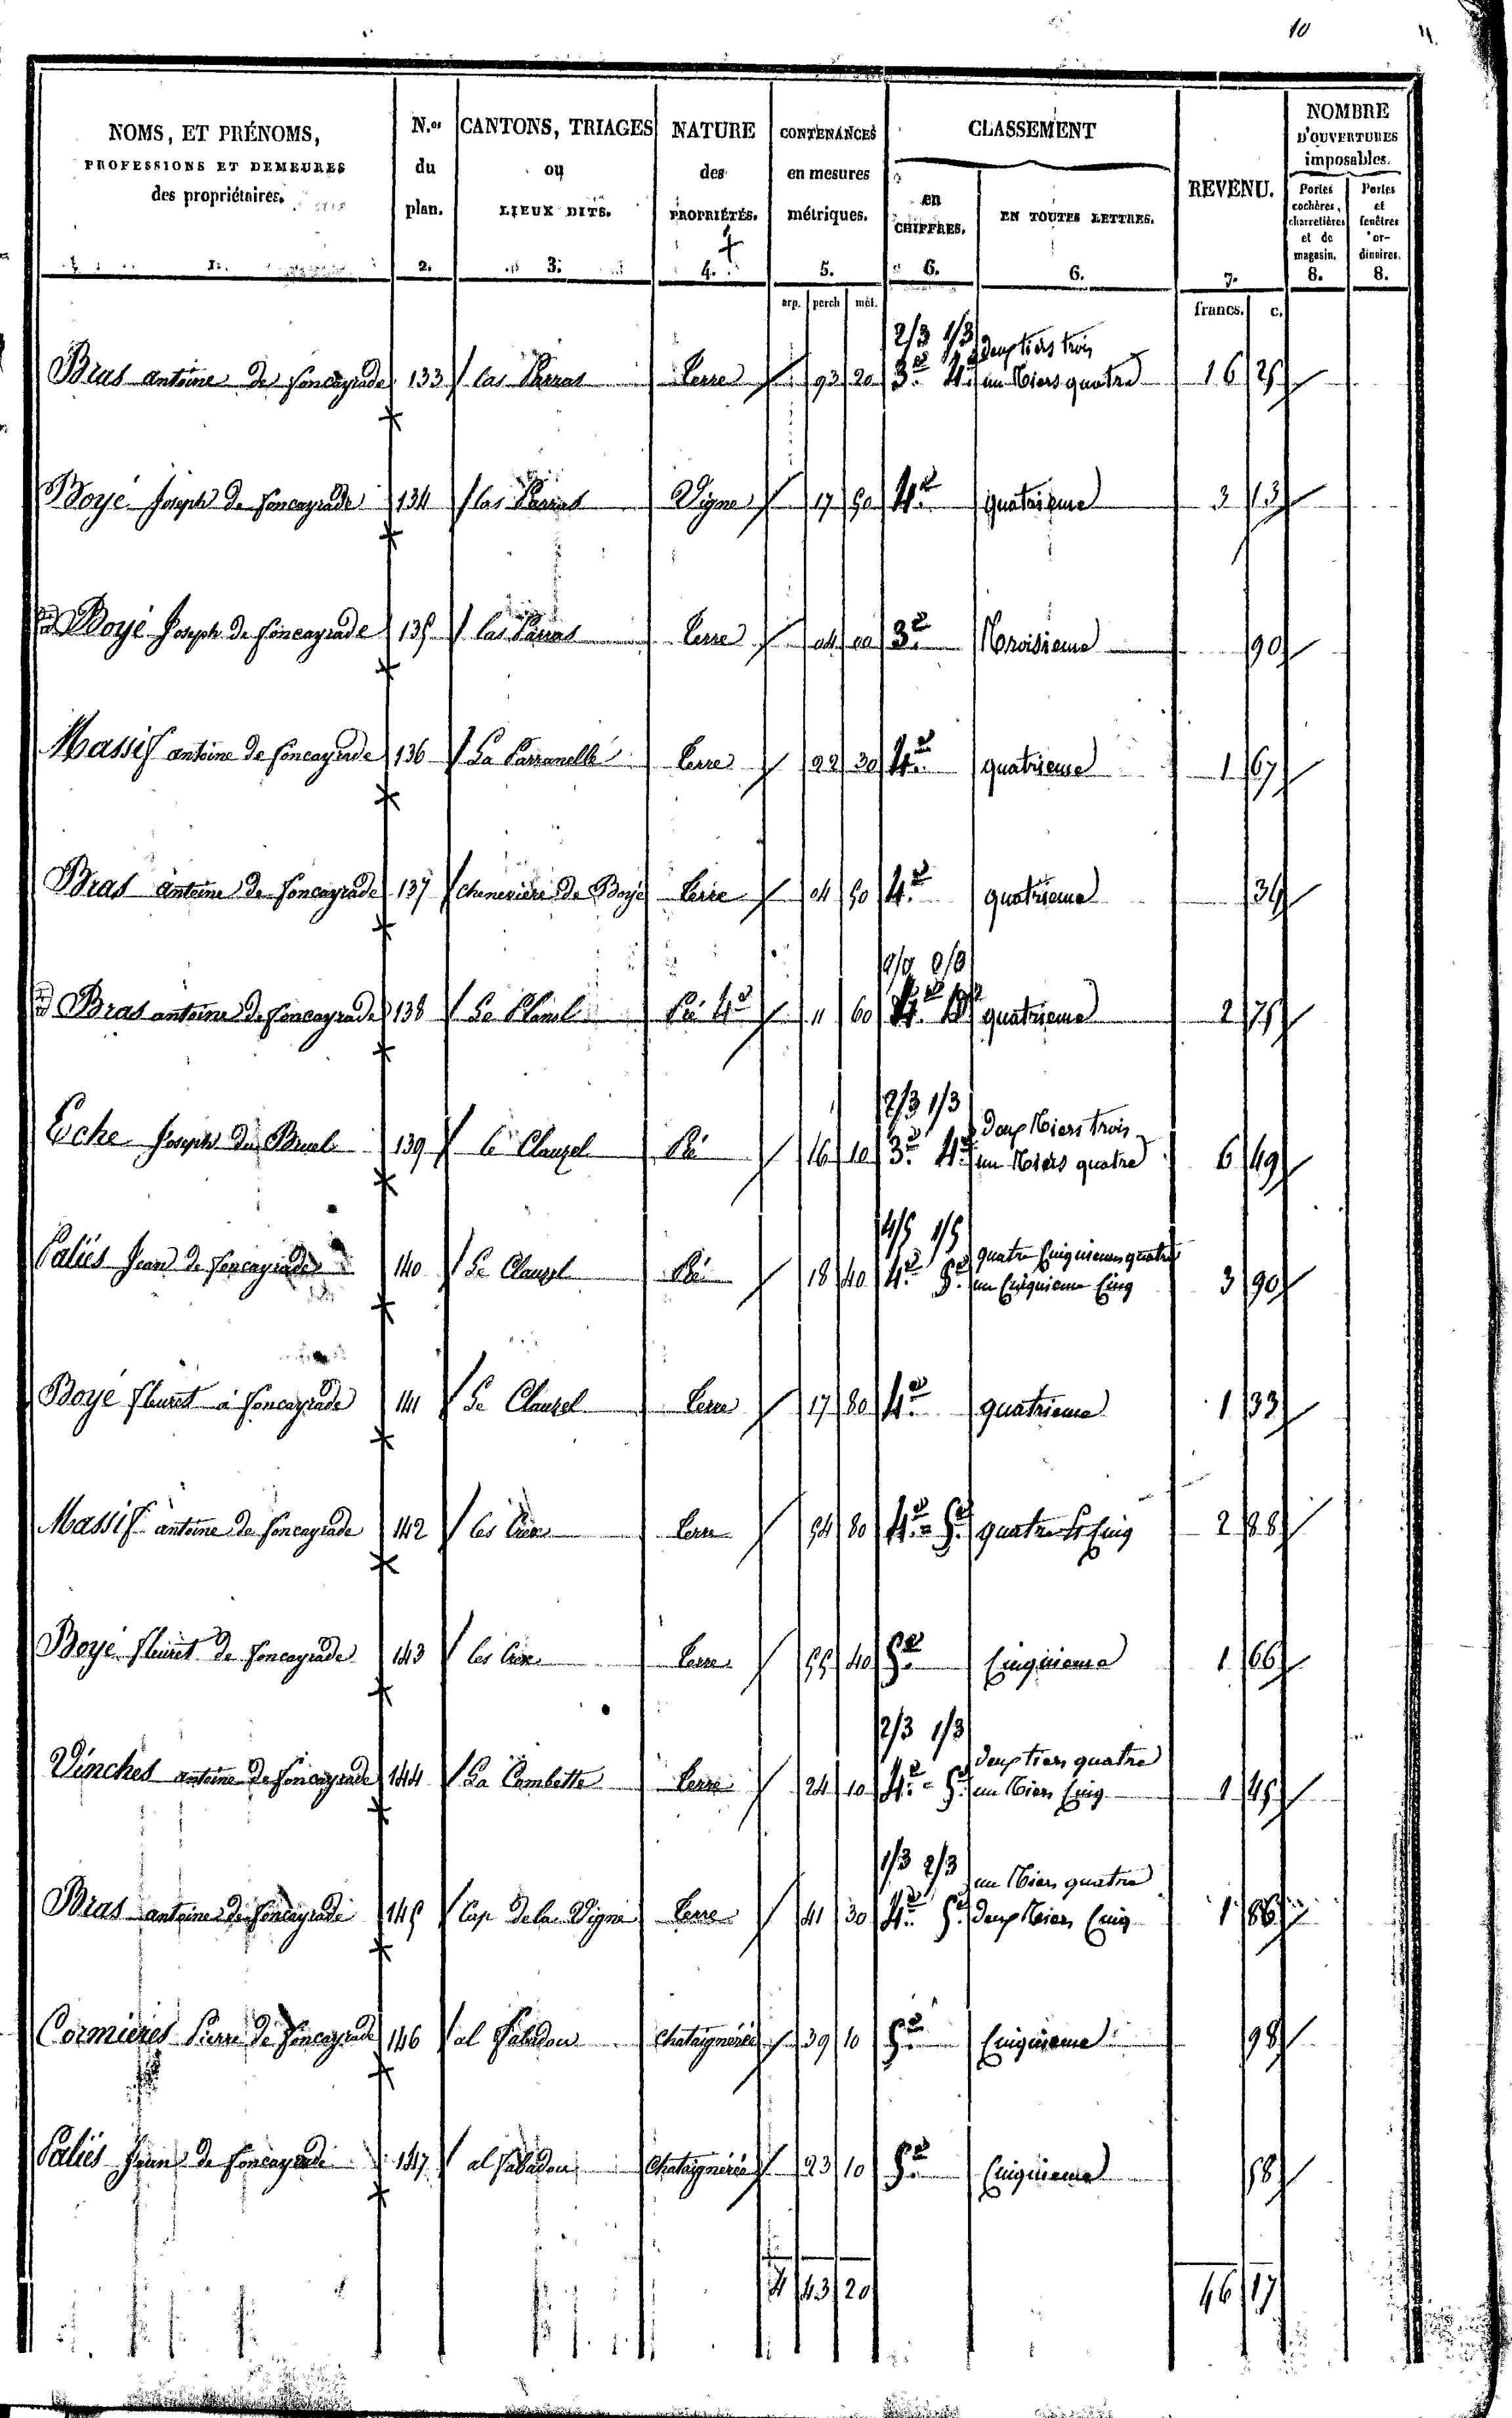 10
NOMS, ET PRÉNOMS, PROFESSIONS ET DEMEURES des propriétaires. 1.
N.os du plan. 2.
CANTONS, TRIAGES ou LIEUX DITS. 3.
NATURE des PROPRIÉTÉS. 4.
CONTENANCES en mesures métriques. 5.
CLASSEMENT
en CHIFFRES. 6.
EN TOUTES LETTRES. 6.
REVENU. 7.
NOMBRE D'OUVERTURES imposables.
Portes cochères, charretières et de magasin. 8.
Portes et fenêtres ordinaires. 8.
arp. perch mèt. francs. c.
2/3 1/3 deux tiers trois
Bras antoine de foncayrade 133 las Parras Terre 93 20 3e 4e un tiers quatre 16 25
Boyé Joseph de foncayrade 134 las Parras Vigne 17 50 4e quatrieme 3 13
Boyé Joseph de foncayrade 135 las Parras Terre 04 00 3e troisieme 90
Massif antoine de foncayrade 136 La Parranelle Terre 22 30 4e quatrieme 1 67
Bras antoine de foncayrade 137 cheneviere de Boyé Terre 04 50 4e quatrieme 34
Bras antoine de foncayrade 138 Le Pré 4e 11 60 4e quatrieme 2 75
2/3 1/3 deux tiers trois
Eche Joseph du Bruel 139 le Clauzel Pré 16 10 3e 4e un tiers quatre 6 49
4/5 1/5 quatre Cinquiemes quatre
Paliés Jean de foncayrade 140 Le Clauzel Pré 18 40 4e 5e un Cinquieme Cinq 3 90
Boyé fleuret à foncayrade 141 Le Clauzel Terre 17 80 4e quatrieme 1 33
Massif antoine de foncayrade 142 les Terre 54 80 4e = 5e quatre et Cinq 2 88
Boyé fleuret de foncayrade 143 les Terre 55 40 5e Cinquieme 1 66
2/3 1/3 deux tiers quatre
Vinches antoine de foncayrade 144 La Combette Terre 24 10 4e = 5e un tiers Cinq 1 45
1/3 2/3 un tiers quatre
Bras antoine de foncayrade 145 Cap de la Vigne Terre 41 30 4e 5e deux tiers Cinq 1 86
Cormieres Pierre de foncayrade 146 al Chataigneréé 39 10 5e Cinquieme 98
Paliés Jean de foncayrade 147 al Chataigneréé 23 10 5e Cinquieme 58
4 43 20 46 17